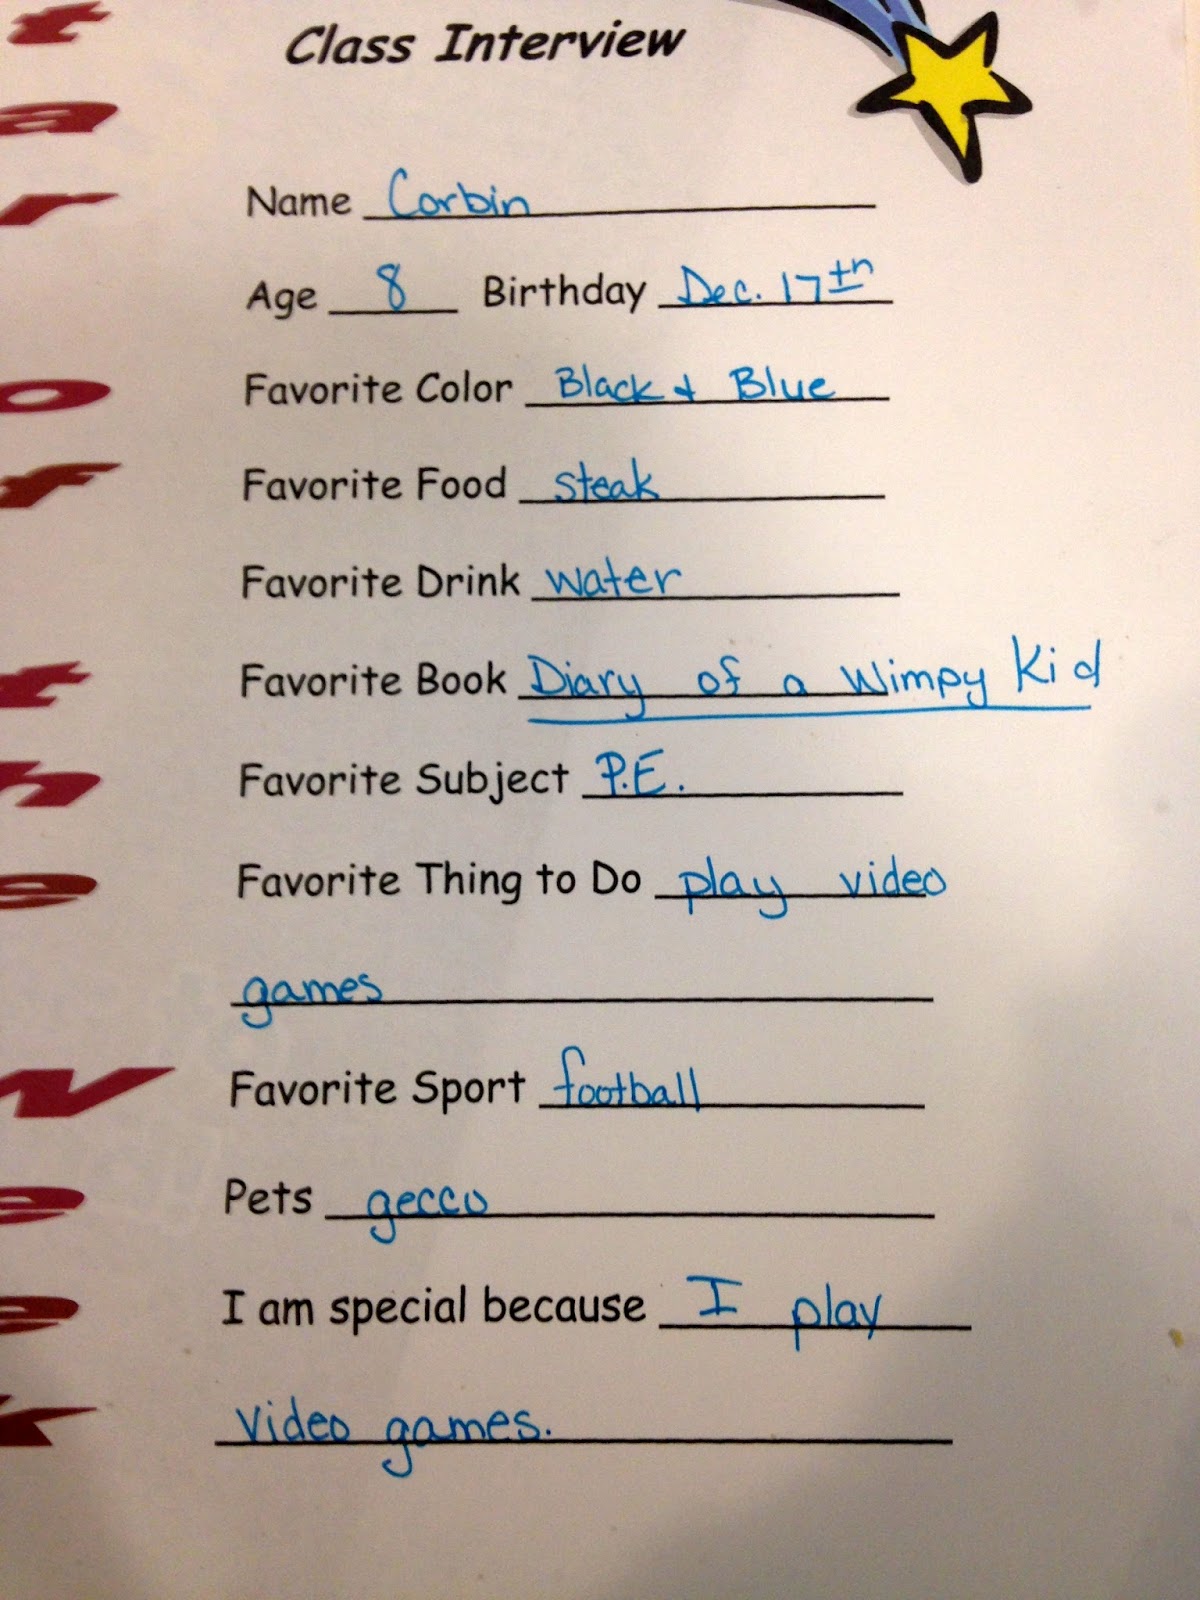 Class Interview
Name Corbin
Age 8 Birthday Dec. 17th
Favorite Color Black & Blue
Favorite Food steak
Favorite Drink water
Favorite Book Diary of a Wimpy Kid
Favorite Subject P.E.
Favorite Thing to Do play video
games
Favorite Sport football
Pets gecco
I am special because I play
video games.
t
a
r
o
f
t
h
e
W
e
e
k